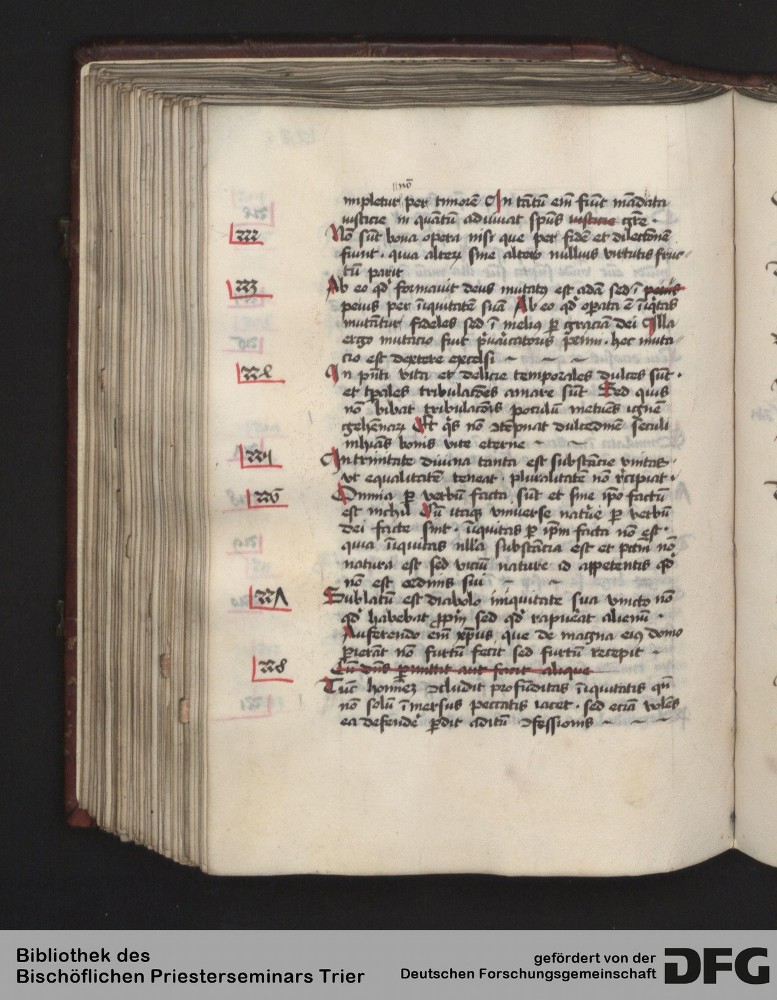 nō
impletur per timorē In tātū eni fiūt mādata
iusticie in quātū adiuuat spūs iusticie gre.
222 Nō sūt bona opera nisi que per fidē et dilectōnē
fiunt. quia alterū sine altero nullius virtutis fruc-
tū parit
223 Ab eo qd formauit deus mutatꝰ est adā sed ī peius
peius per īiquitatē suā Ab eo qd opata ē īiqitas
mutātur fideles sed ī melius p graciā dei Illa
ergo mutacio fuit puaricatoris pmi. hec muta
cio est dextere excelsi
224 In pnti vita et delicie temporales dulces sūt.
et tpales tribulacōes amare sūt Sed quis
nō bibat tribulacōis poculū metuēs ignē
gehēnaꝝ Et qis nō ꝯtēpnat dulcedinē seculi
inhyās bonis vite eterne
225 In trinitate diuina tanta est substācie vnitas
vt equalitatē teneat. pluralitatē nō recipiat.
226 Omnia p verbū facta sūt et sine ipo factū
est nichil Cū itaqꝫ vniuerse nature p verbū
dei facte sint. īiquitas p ipm facta nō est.
quia īiquitas nlla substācia est et pctm nō
natura est sed viciū nature id appetentis qd
nō est ordinis sui
227 Sublatū est diabolo iniquitate sua victo nō
qd habebat ppiū sed qd rapuerat alienū.
Auferendo eni xpus que de magna eius domo
pierāt nō furtū fecit sed furtū recepit
228 Cū dns pmittit aut facit aliqua
Tūc hominē ꝯcludit profunditas īiquitatis qn
nō solū īmersus peccatis iacet. sed eciā volēs
ea defendere pdit aditū ꝯfessionis
Bibliothek des
Bischöflichen Priesterseminars Trier
gefördert von der
Deutschen Forschungsgemeinschaft
DFG